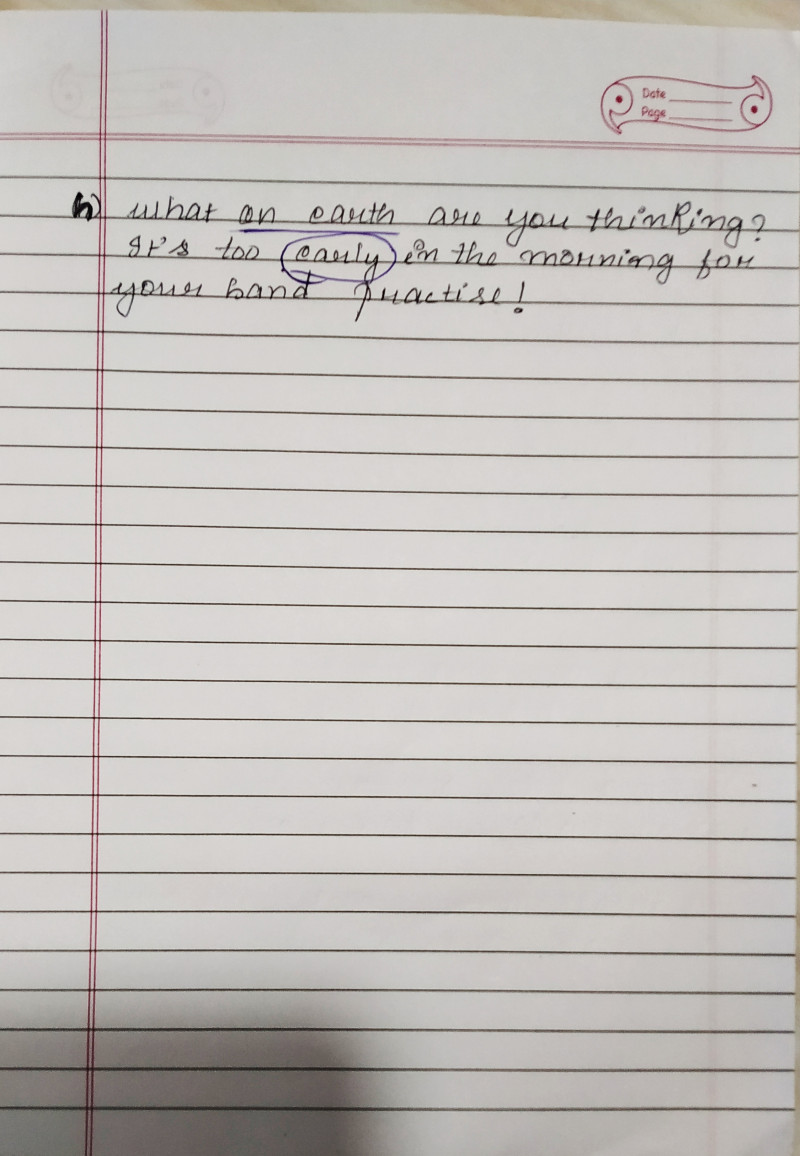 Date
Page
h) What on earth are you thinking?
It's too early in the morning for
your band practise!